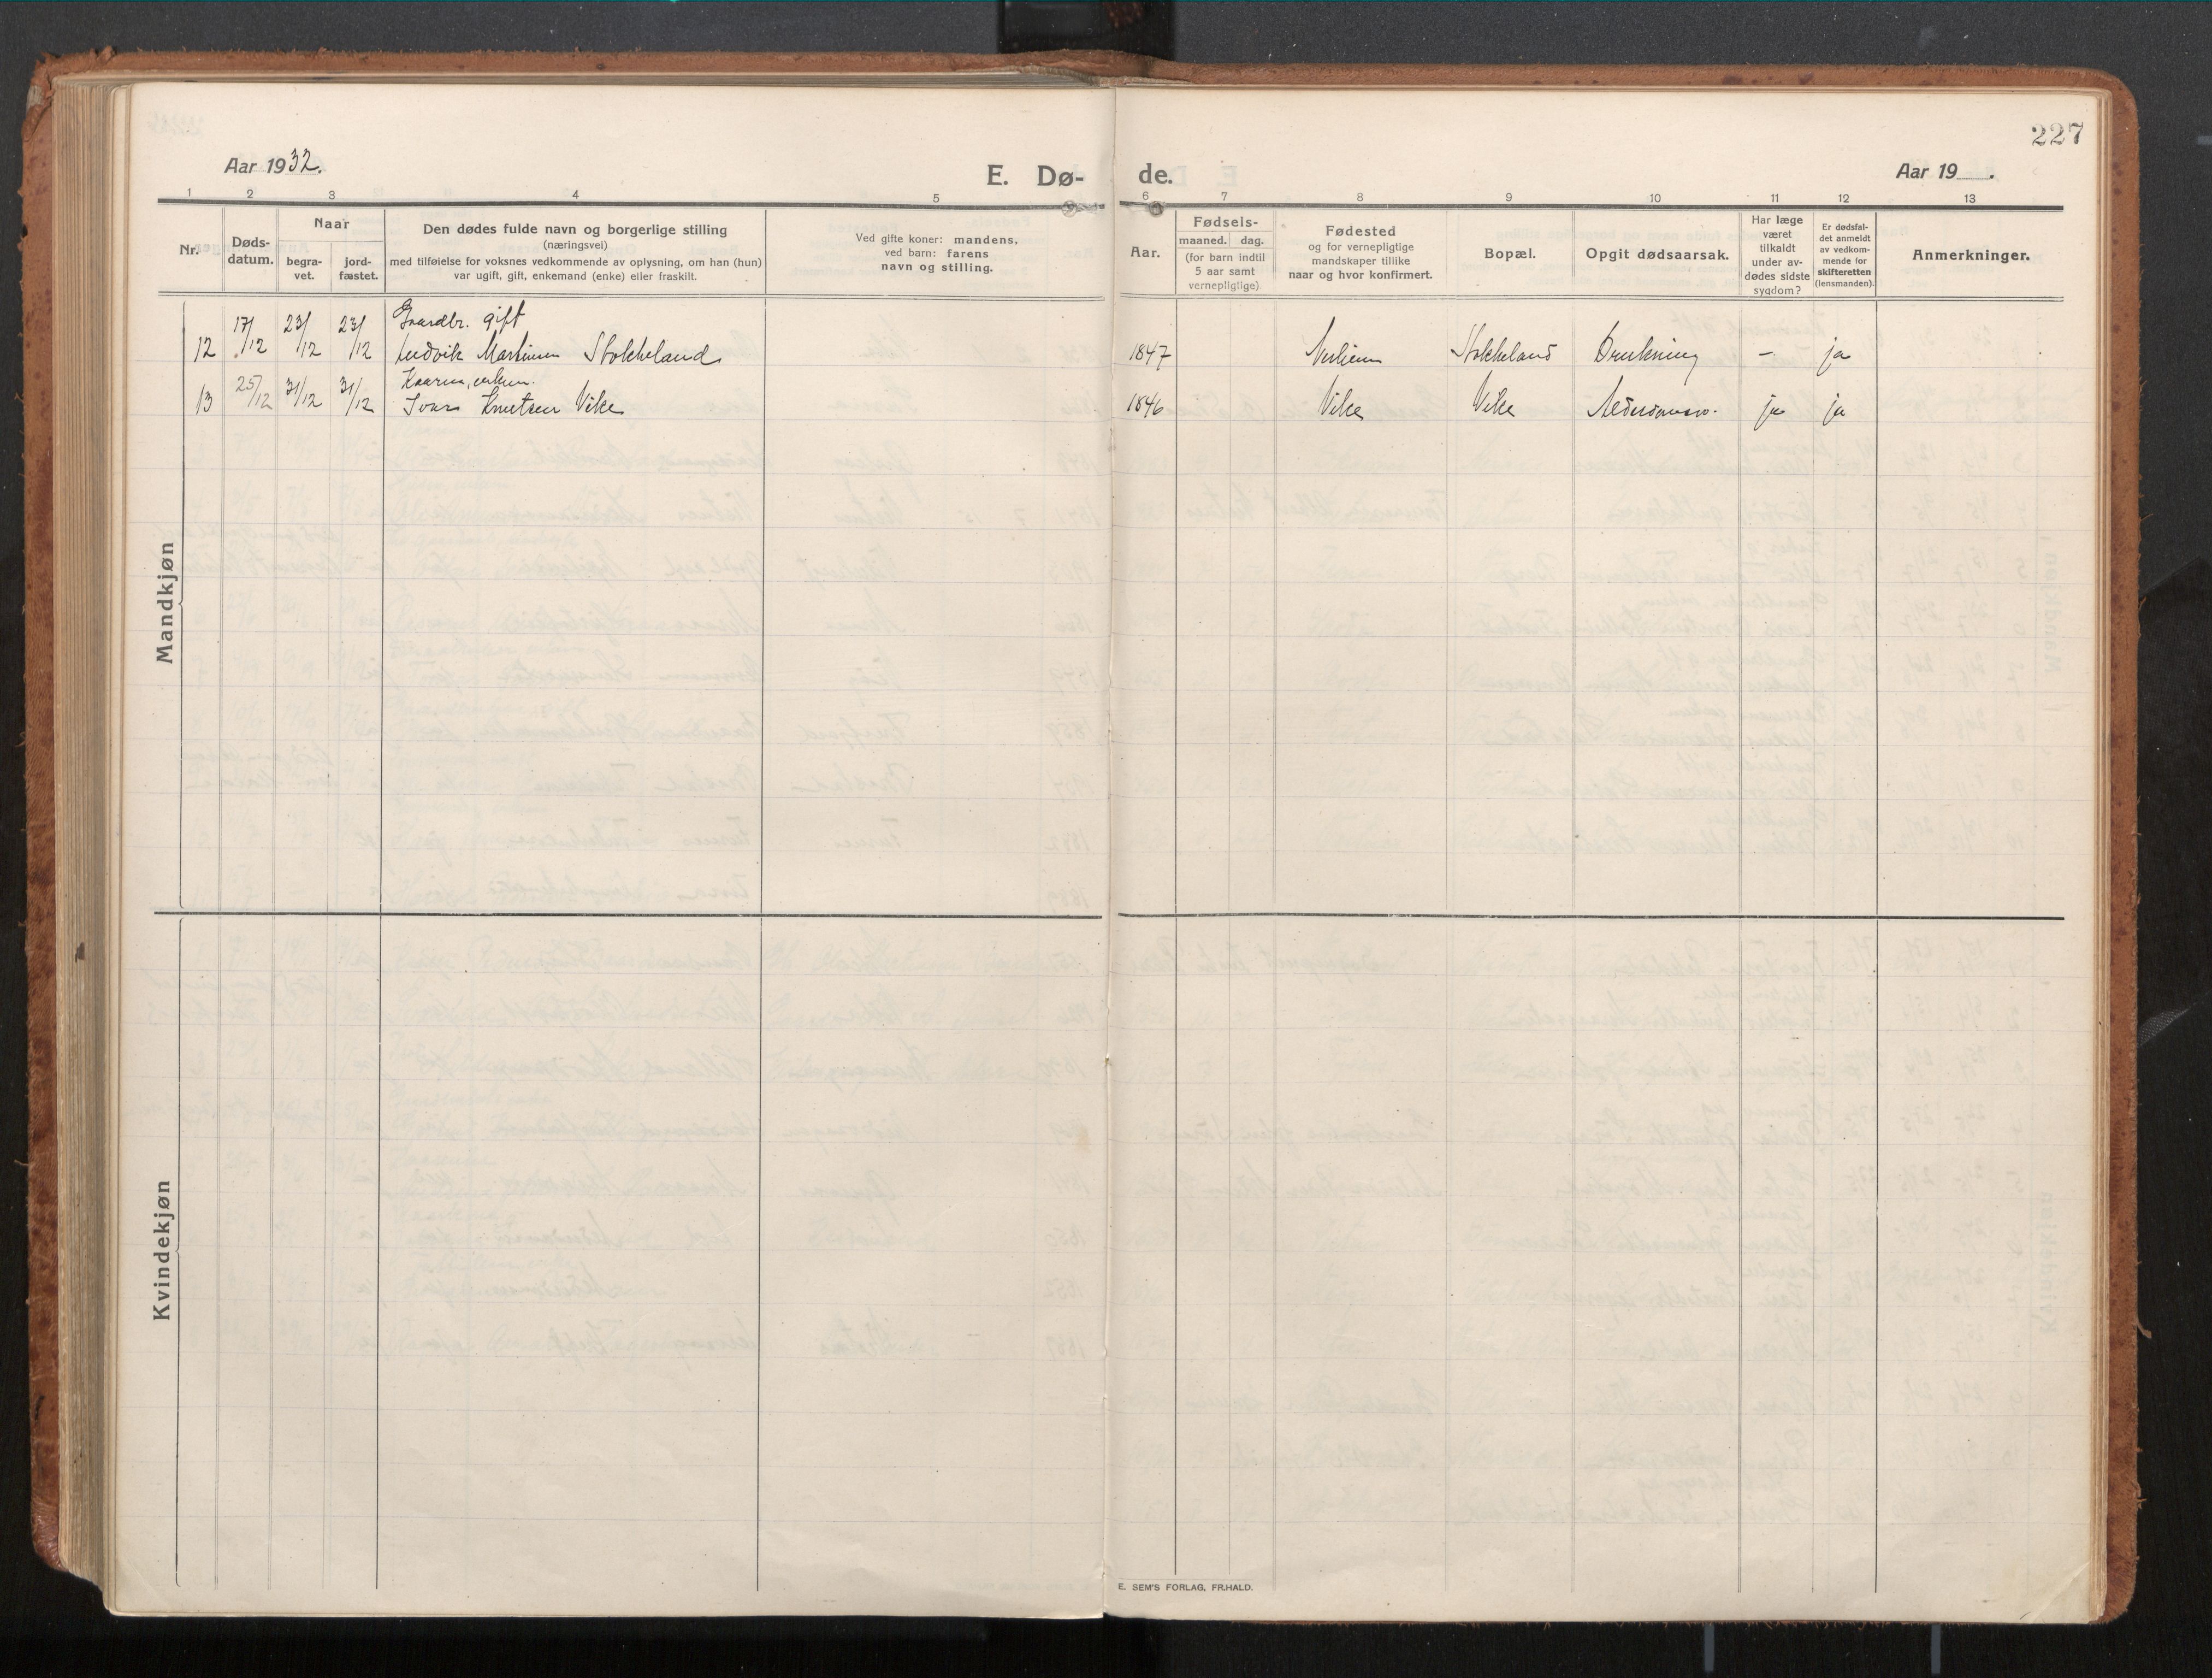 227
Aar 1932.
E. Dø-
de.
Aar 19 .
1 2 3 4 5 6 7 8 9 10 11 12 13
Nr.
Døds-
datum.
Naar
begra-
vet.
jord-
fæstet.
Den dødes fulde navn og borgerlige stilling
(næringsvei)
med tilføielse for voksnes vedkommende av oplysning, om han (hun)
var ugift, gift, enkemand (enke) eller fraskilt.
Ved gifte koner: mandens,
ved barn: farens
navn og stilling.
Aar.
Fødsels-
maaned. dag.
(for barn indtil
5 aar samt
vernepligtige)
Fødested
og for vernepligtige
mandskaper tillike
naar og hvor konfirmert.
Bopæl.
Opgit dødsaarsak.
Har læge
været
tilkaldt
under av-
dødes sidste
sygdom?
Er dødsfal-
det anmeldt
av vedkom-
mende for
skifteretten
(lensmanden).
Anmerkninger.
Mandkjøn
Gaardbr. gift
12 17/12 23/12 23/12 Ludvik Martinus Stokkeland 1847 Stokkeland Drukning — ja
13 25/12 31/12 31/12 Ivar Knutsen Vike 1846 Vike Vike ja ja
Kvindekjøn
E. SEM'S FORLAG, FR.HALD.